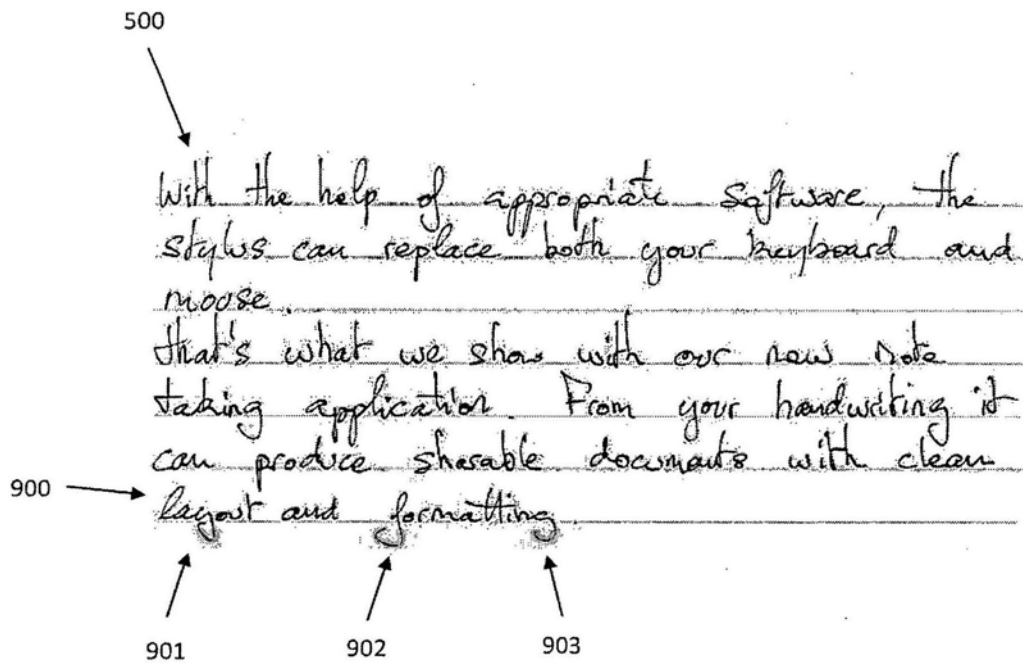 500
With the help of appropriate software, the
stylus can replace both your keyboard and
mouse.
that's what we show with our new note
taking application. From your handwriting it
can produce sharable documents with clean
900
layout and formatting.
901
902
903